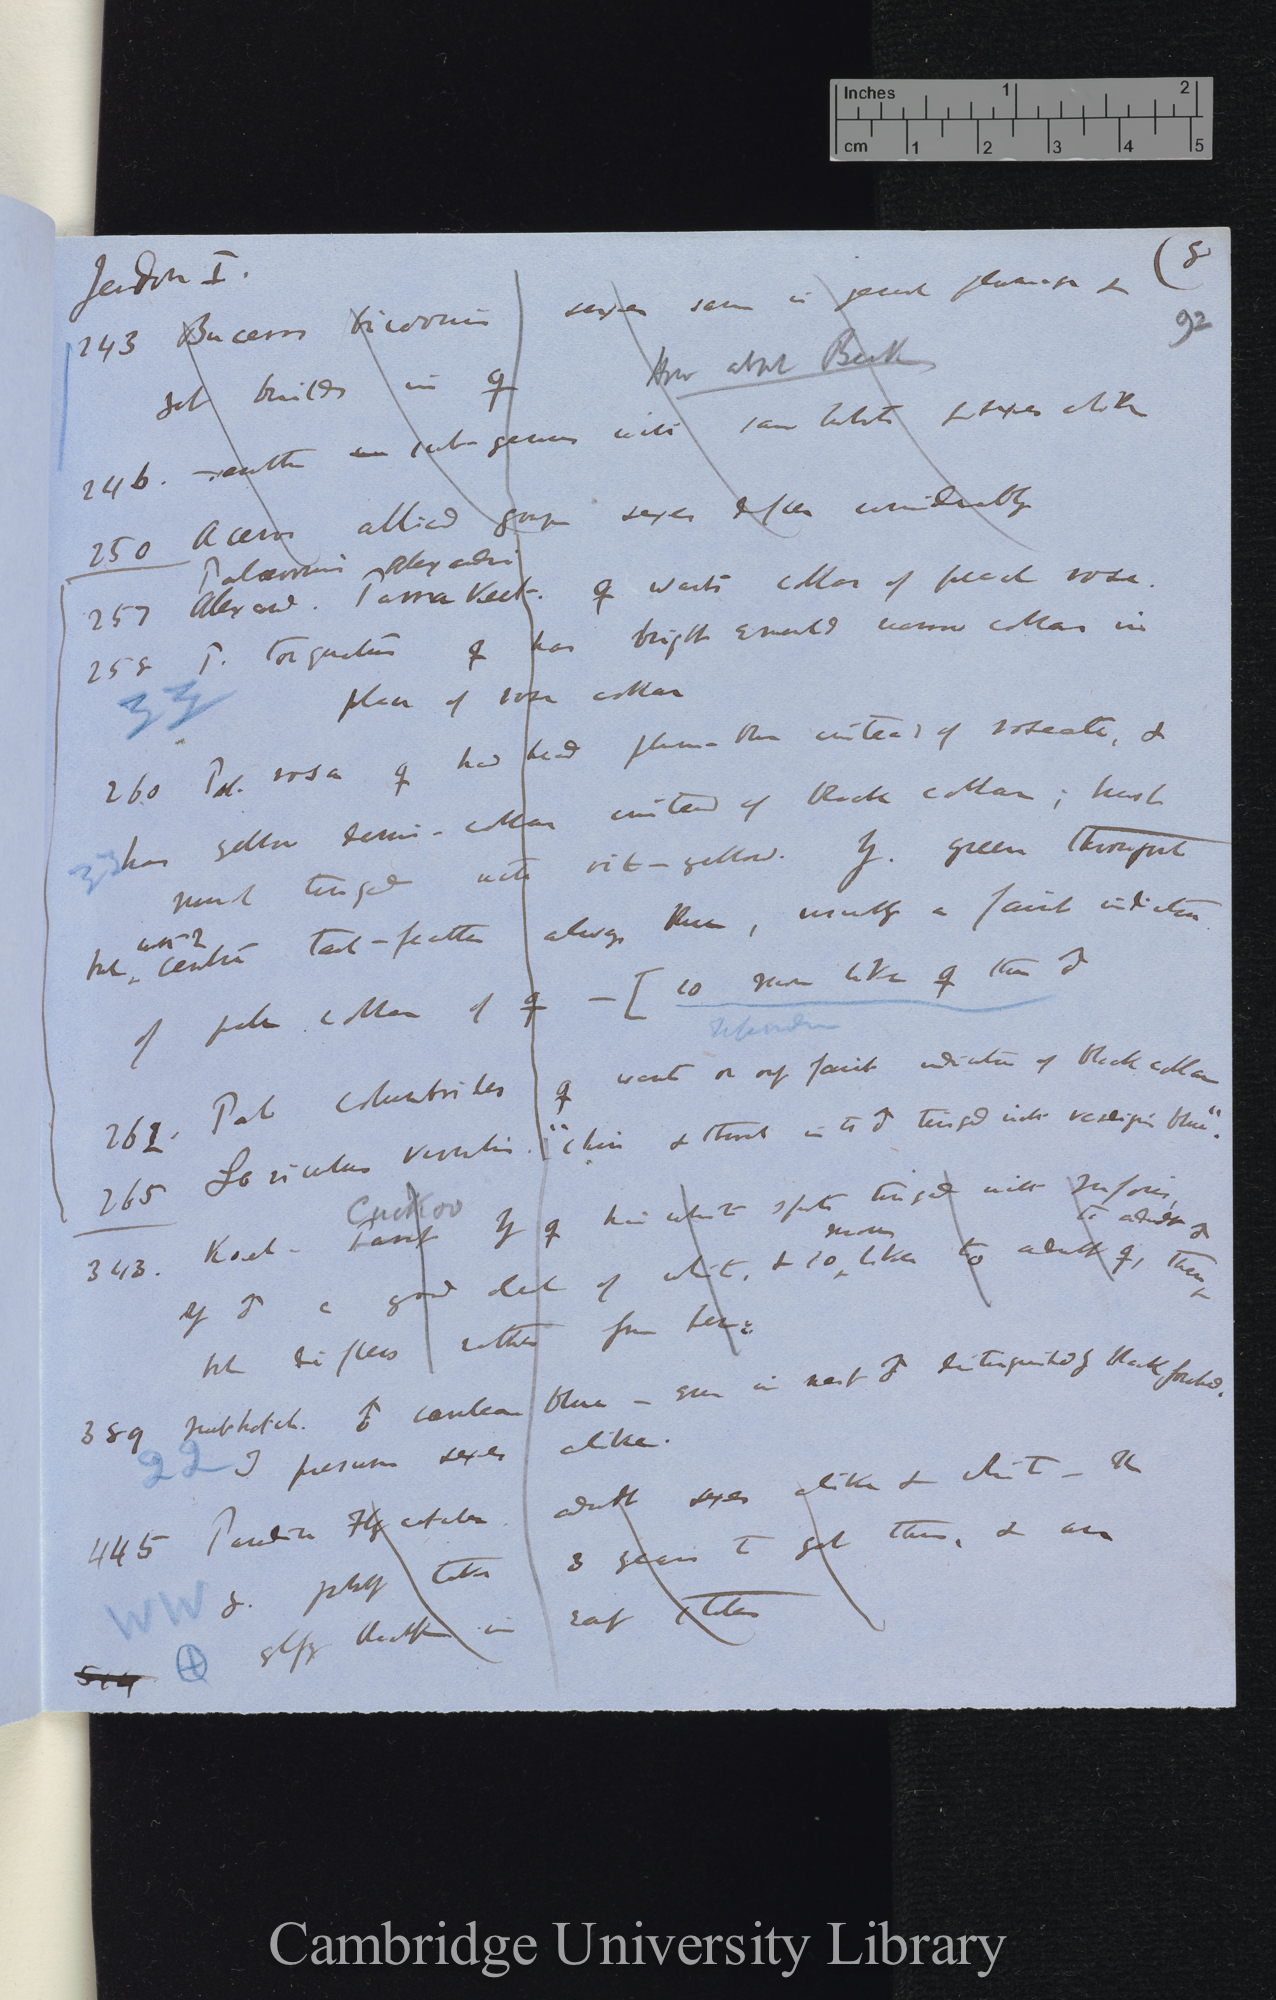 Inches 1 2
cm 1 2 3 4 5
Jerdon I. (8
92
243 Buceros bicornis sexes same in general plumage &
yet builds in ♀ How about Beak
246. another sub-genus with same habits & sexes alike
250 Aceros allied group sexes differ considerably
Palæornis Alexandri
257 Alexand. Parrakeet. ♀ wants collar of peach rose.
258 P. torquatus ♀ has bright emerald narrow collar in
33 place of rose collar
260 Pal. rosa ♀ has head plum-blue instead of roseate, &
33 has yellow demi-collar instead of black collar;
much tinged with yellow. Y. green throughout
but centre tail-feathers always blue, usually a faint indication
of pale collar of ♀ — [so more like ♀ than ♂
262. Pal columboides ♀ wants or only faint indication of black collar
265 Loriculus vernalis. "chin & throat in the ♂ tinged with verdigris blue".
Cuckoo
343. Koel - Y ♀ has white spots tinged with rufous,
more to adult ♂
Y ♂ a good deal of white, & so like to adult ♀, than
but differs rather from her.
389 nuthatch. ♂ cærulean blue — even in nest ♂ distinguished by black forehead.
22 I presume sexes alike.
445 Paradise Flycatcher. adult sexes alike & white — the
WW ♂. takes 3 years to get this, & are
in early states
514